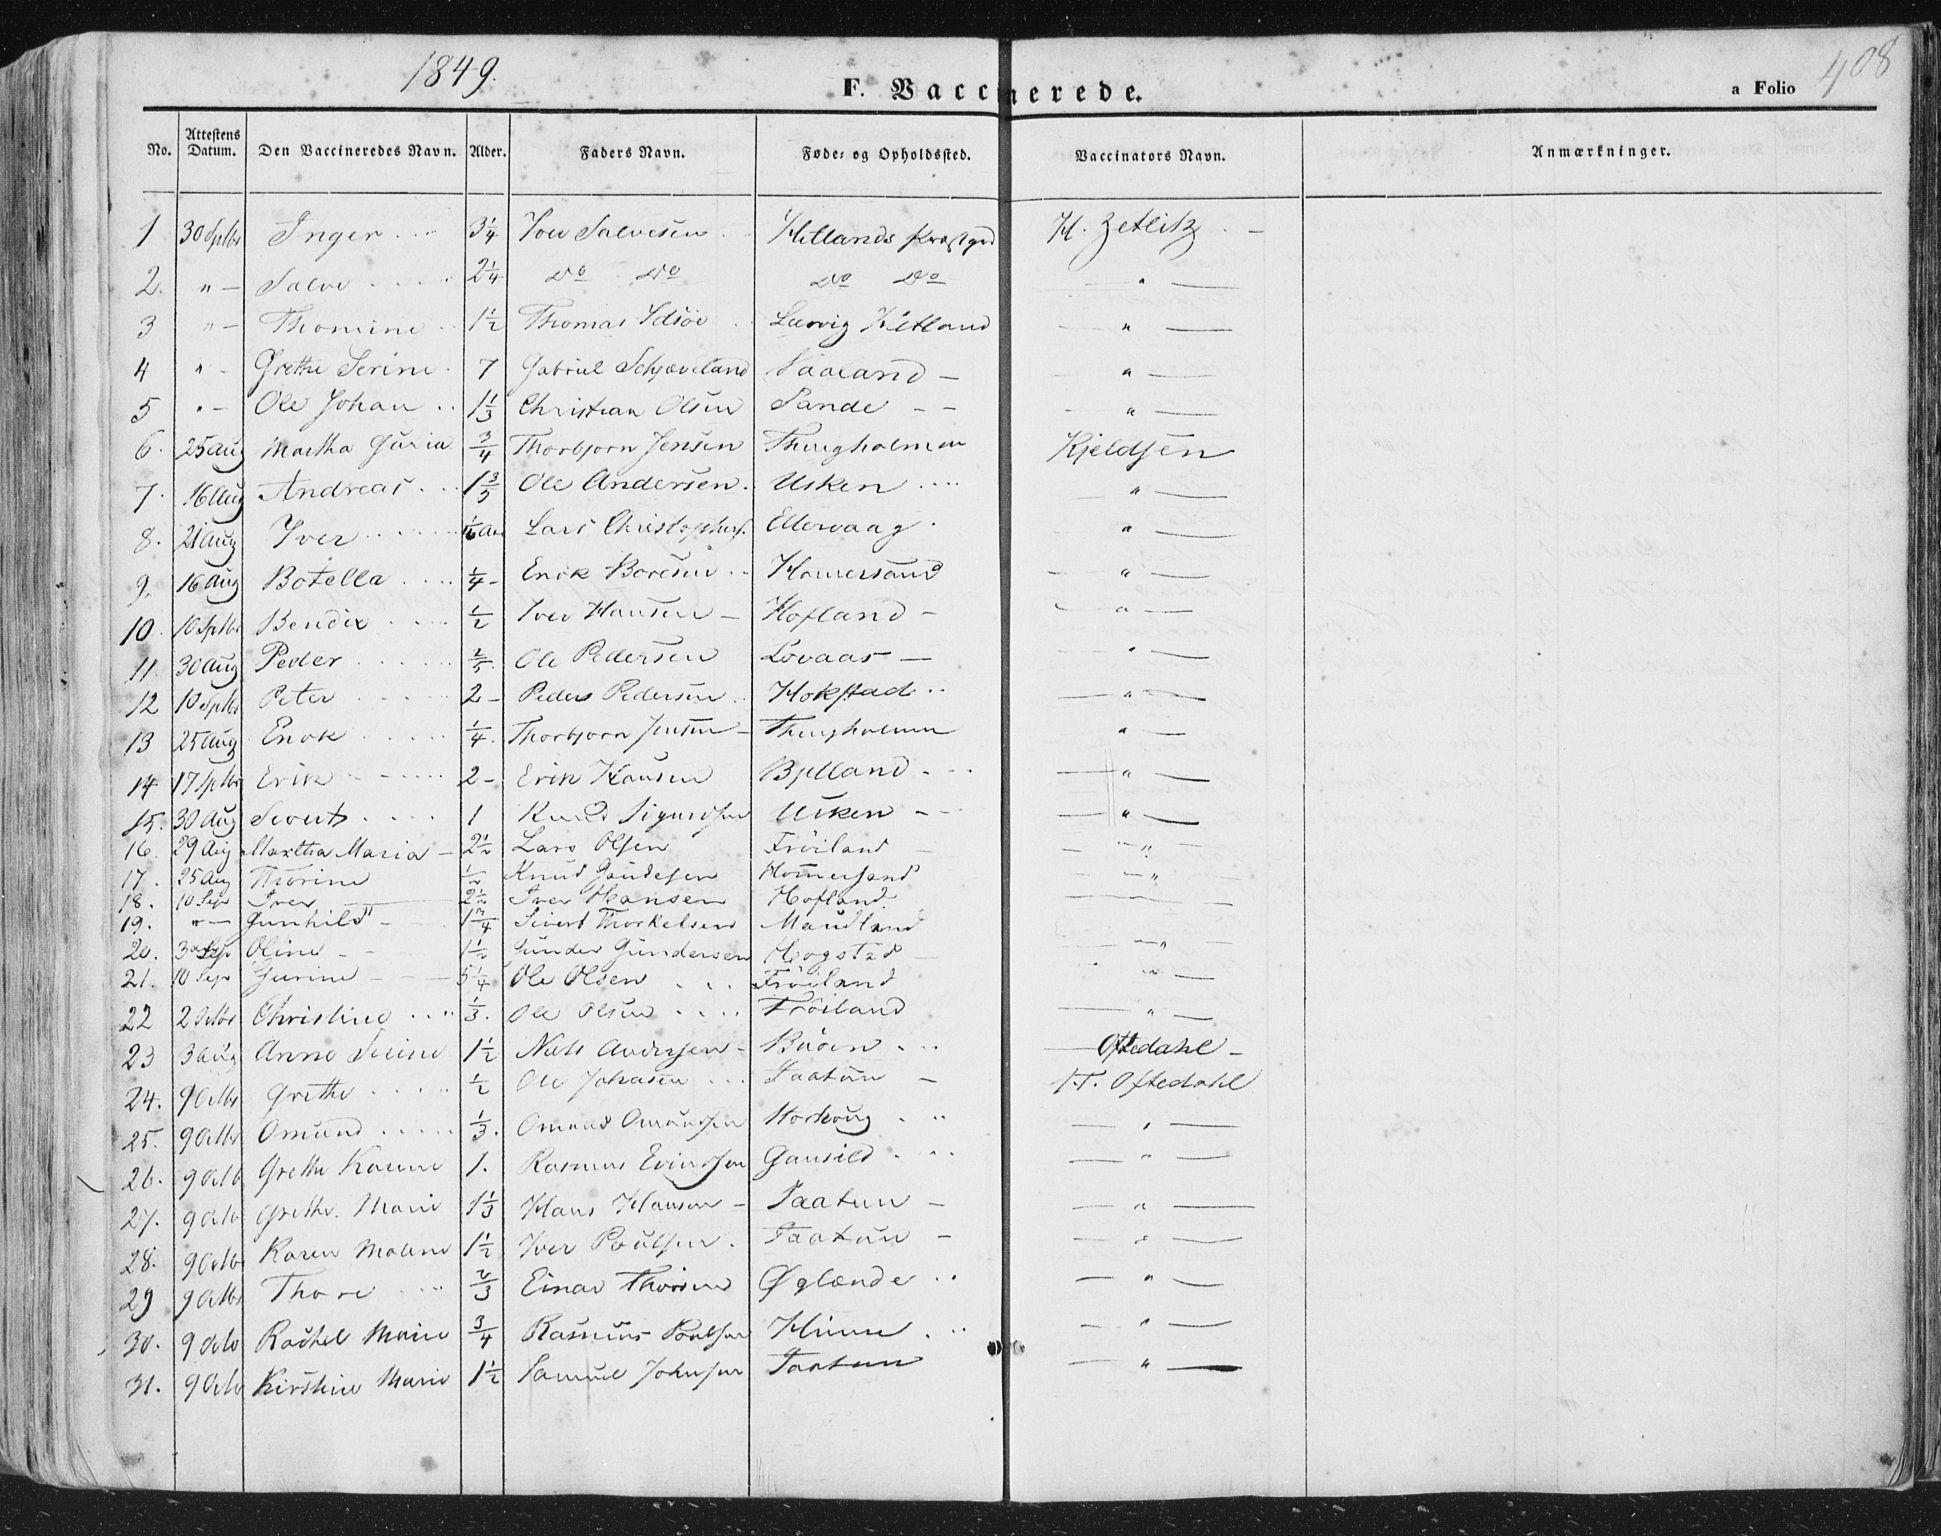 1849.
F. Vaccinerede.
a Folio 408
No. Attestens Datum. Den Vaccineredes Navn. Alder. Faders Navn. Føde- og Opholdssted. Vaccinators Navn. Anmærkninger.
1 30 Sptbr Inger 3 1/4 Iver Salvesen Hetlands Præstgrd H. Zetlitz
2. " — Salve 2 1/4 Do Do Do Do "
3 " — Thomine 1 1/2 Thomas Idsöe Lervig Hetland "
4 " - Grethe Serine 7 Gabriel Schjæveland Vaaland "
5 " - Ole Johan 1 1/3 Christian Olsen Sande "
6. 25 Aug Martha Guria 3/4 Thorbjorn Jensen Thingholmen Kjeldsen
7. 16 Aug Andreas 1 3/5 Ole Andersen Usken "
8. 21 Aug Iver Lars Christophers. Ellervaag "
9. 16 Aug Botella 1/4 Enok Boresen Homersand "
10. 10 Sptbr Bendix 1/2 Iver Hansen Hofland "
11. 30 Aug Peder 2/5 Ole Pedersen Lovaas "
12 10 Sptbr Peter 2 Peder Pedersen Hokstad "
13 25 Aug Enok 1/4 Thorbjorn Jensen Thingholmen "
14 17 Sptbr Erik 2 Erik Hansen Bjelland "
15. 30 Aug Sivert 1 Knud Sigurdsen Usken "
16. 29 Aug Martha Maria 2 1/2 Lars Olsen Fröiland "
17. 25 Aug Thorine 1/2 Knud Gaudesen Homersand "
18. 10 Sept Iver 2 1/2 Iver Hansen Hofland
19. " — Gunhild 1 3/4 Sivert Thorkelsen Maudland
20. Sep Oline 1 1/2 Gunder Gundersen Hogstad "
21. 10 Sep Gurine 5 1/4 Ole Olsen Fröiland "
22 2 Octbr Christine 1/3. Ole Olsen Fröiland "
23 3 Aug Anne Serine 1 1/2 Niels Andersen Büoen Oftedahl
24. 9 Octbr Grethe 1/2 Ole Johnsen Taatun T. Oftedahl
25. 9 Octbr Omund 1/3. Omund Omundsen "
26. 9 Octb Grethe Karine 1. Rasmus Evindsen "
27. 9 Octb Grethe Marie 1 1/3 Hans Hansen Taatun "
28. 9 Octb Karen Malene 1 1/2 Iver Poulsen Taatun "
29 9 Octbr Thore 2/3 Einar Thorsen Øglænde "
30. 9 Octb Rachel Marie 3/4 Rasmus Poulsen Hinne "
31. 9 Octb Kirstine Marie 1 1/2 Samuel Johnsen Taatun "